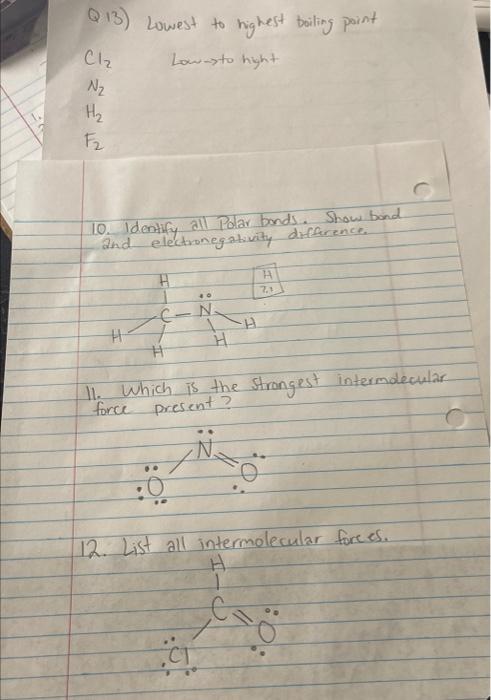 Q13) Lowest to highest boiling point
Cl2 Low→to hight
N2
H2
F2
10. Identify all Polar bonds. Show bond
and electronegativity difference.
H
H
2.1
C - N
H H
H H
11. Which is the strongest intermolecular
force present?
N
O O
12. List all intermolecular forces.
H
C
O
Cl